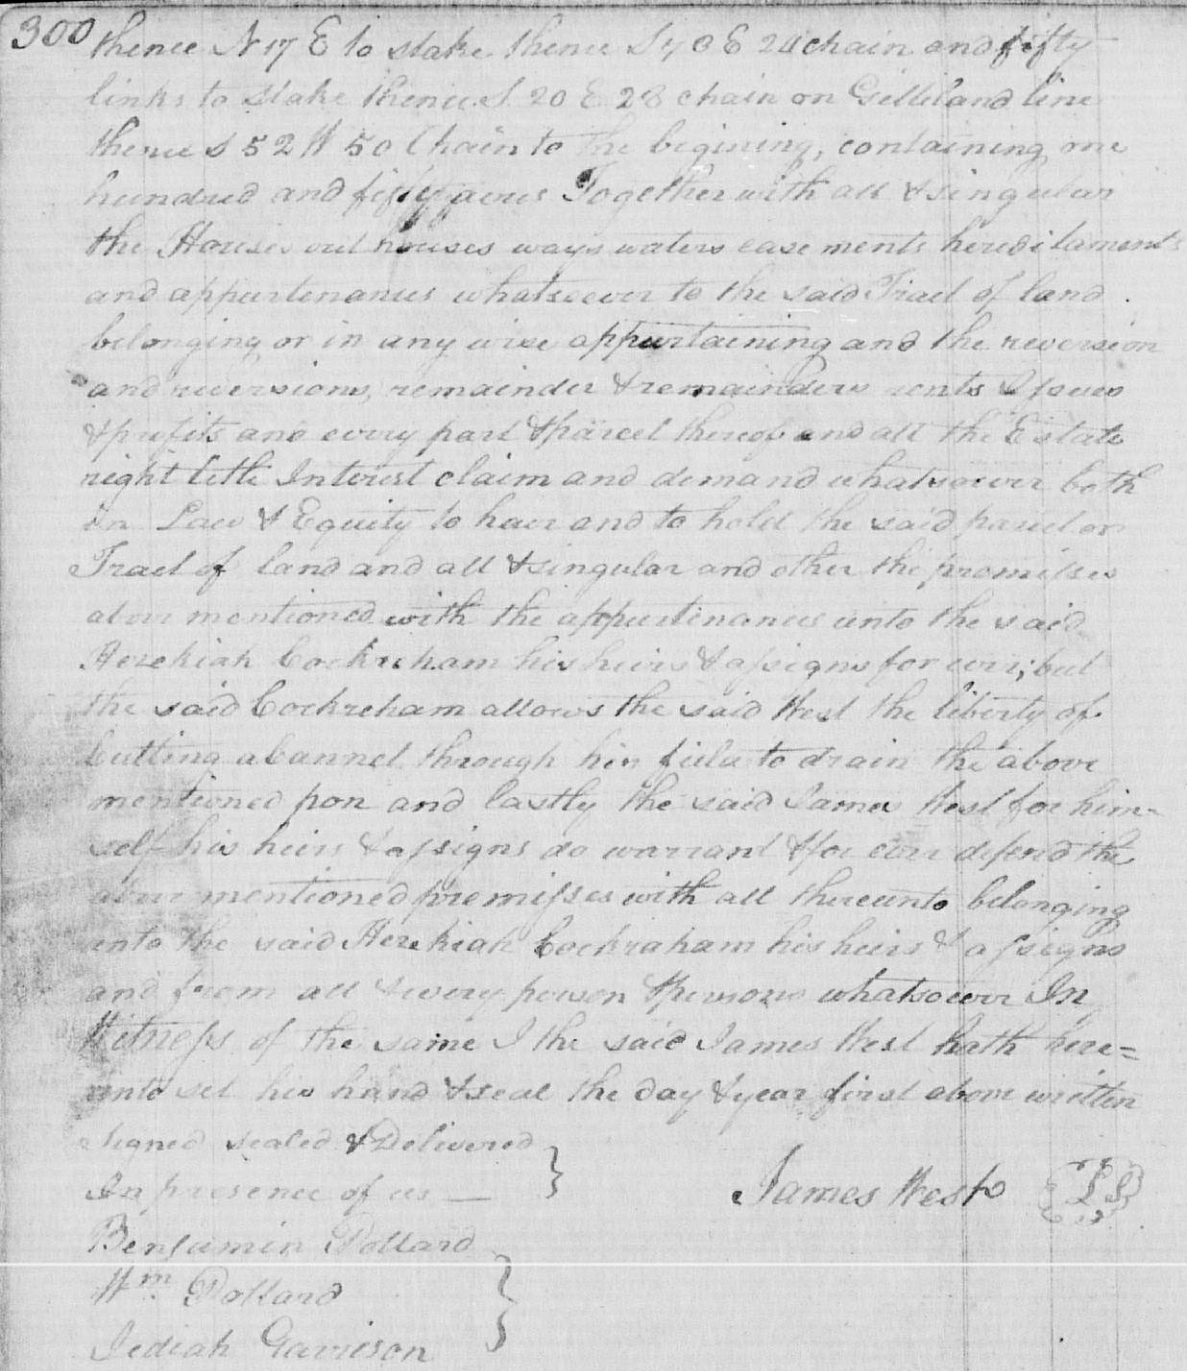 300 thence N 17 E to stake thence S 70 E 24 chain and fifty
links to stake thence S 20 E 28 chain on Gilliland line
thence S 52 W 50 Chain to the begining, containing one
hundred and fifty acres Together with all & singular
the Houses out houses ways waters easements hereditaments
and appurtenances whatsoever to the said Tract of land
belonging or in any wise appurtaining and the reversion
and reversions, remainder & remainders rents & Issues
& profits and every part & parcel thereof and all the Estate
right title Interest claim and demand whatsoever both
in Law & Equity to have and to hold the said parcel or
Tract of land and all & singular and other the premisses
above mentioned with the appurtenances unto the said
Hezekiah Cockreham his heirs & assigns for ever; but
the said Cockreham allows the said West the liberty of
Cutting a Cannel through his field to drain the above
mentioned pon and lastly the said James West for him-
self his heirs & assigns do warrant & for ever defend the
above mentioned premisses with all thereunto belonging
unto the said Hezekiah Cockraham his heirs & assigns
and from all & every person & persons whatsoever In
Witness of the same I the said James West hath here=
unto set his hand & seal the day & year first above written
Signed sealed & Delivered
In presence of us —
James West LS
Benjamin Pollard
Wm. Pollard
Jediah Garrison